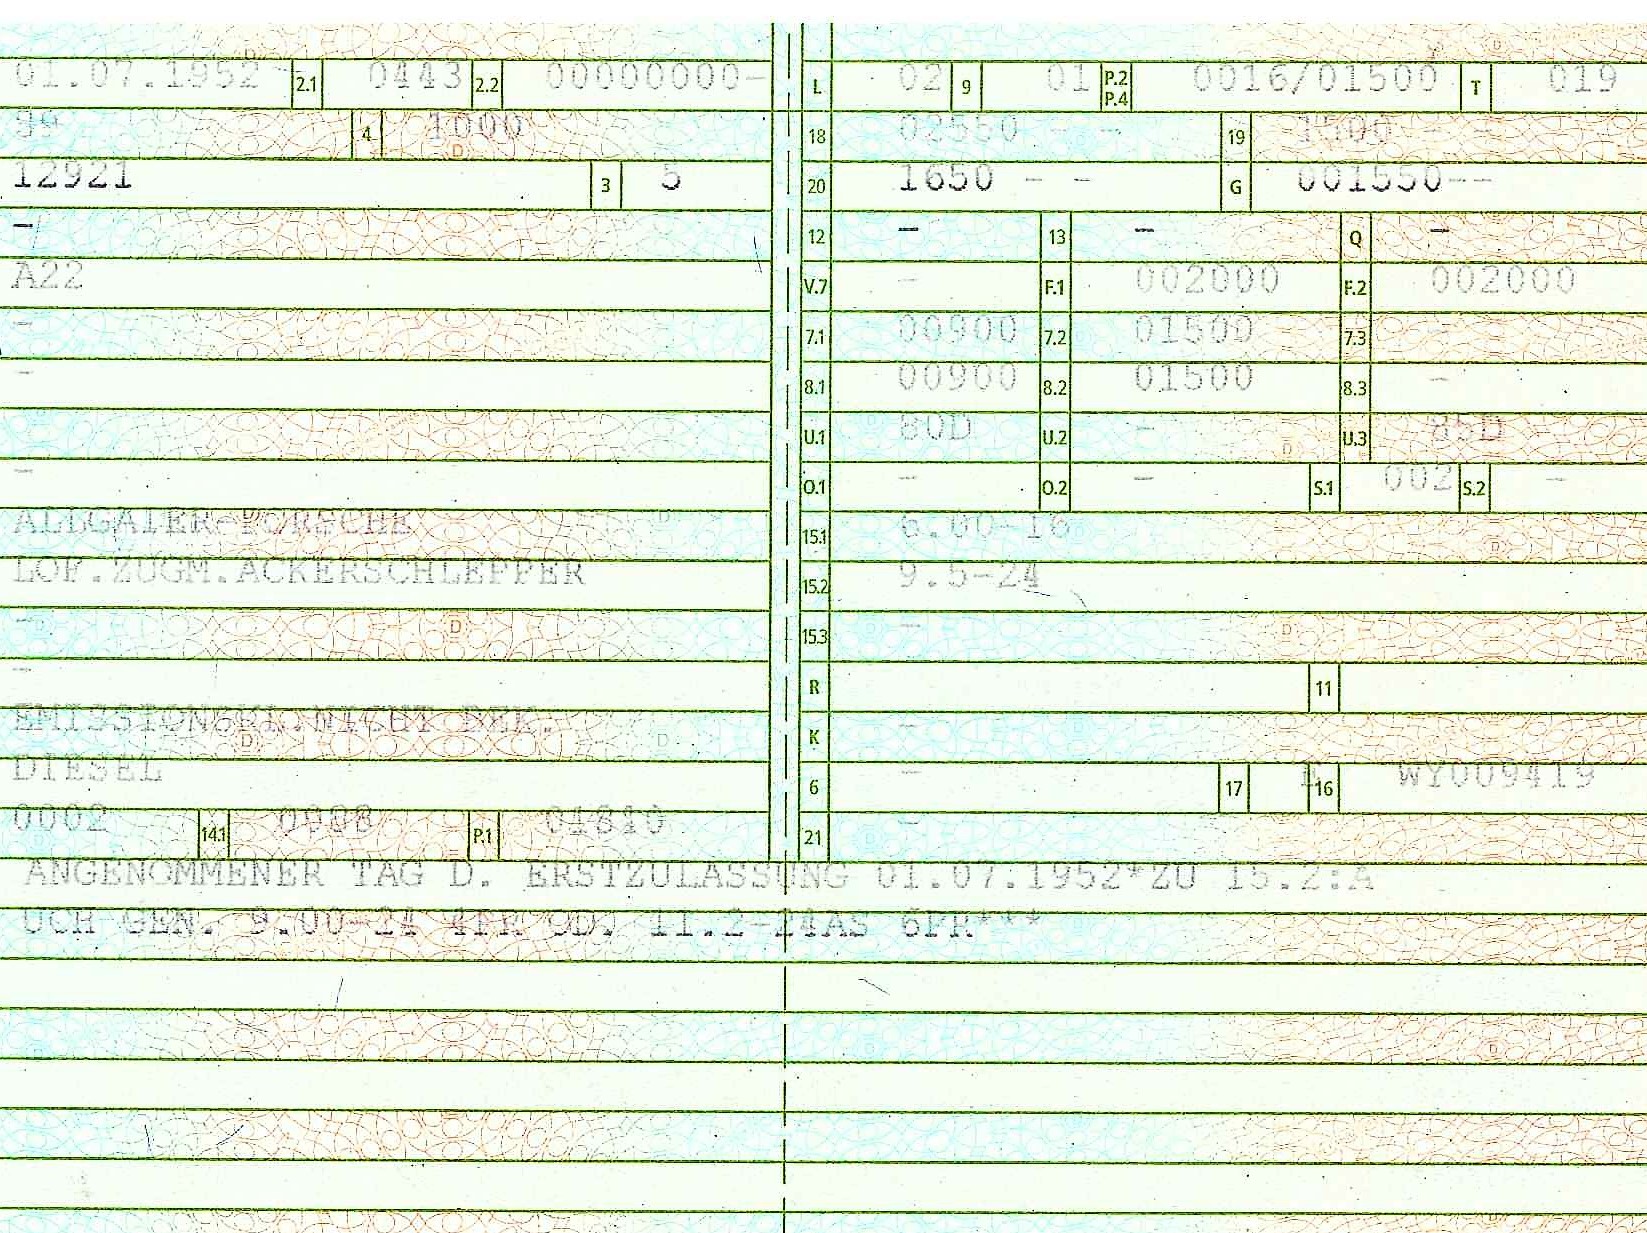 01.07.1952 2.1 0443 2.2 00000000-
89 4 1000
12921 3 5
-
A22
-
-
-
ALLGAIER-PORSCHE
LOF.ZUGM.ACKERSCHLEPPER
-
-
EMISSIONSKL.NICHT BEK.
DIESEL
0002 14.1 P.1
L 02 9 01 P.2 P.4 0016/01500 T 019
18 02550 - - 19 1500 - -
20 1650 - - G 001550--
12 - 13 - Q -
V.7 - F.1 002000 F.2 002000
7.1 00900 7.2 01500 7.3
8.1 00900 8.2 01500 8.3 -
U.1 80D U.2 - U.3 85D
O.1 - O.2 - S.1 002 S.2 -
15.1 6.00-16
15.2 9.5-24
15.3 -
R 11
K -
6 - 17 E 16 WY009419
21 -
ANGENOMMENER TAG D. ERSTZULASSUNG 01.07.1952*ZU 15.2:A
UCH GEN. 9.00-24 4PR OD. 11.2-24AS 6PR***